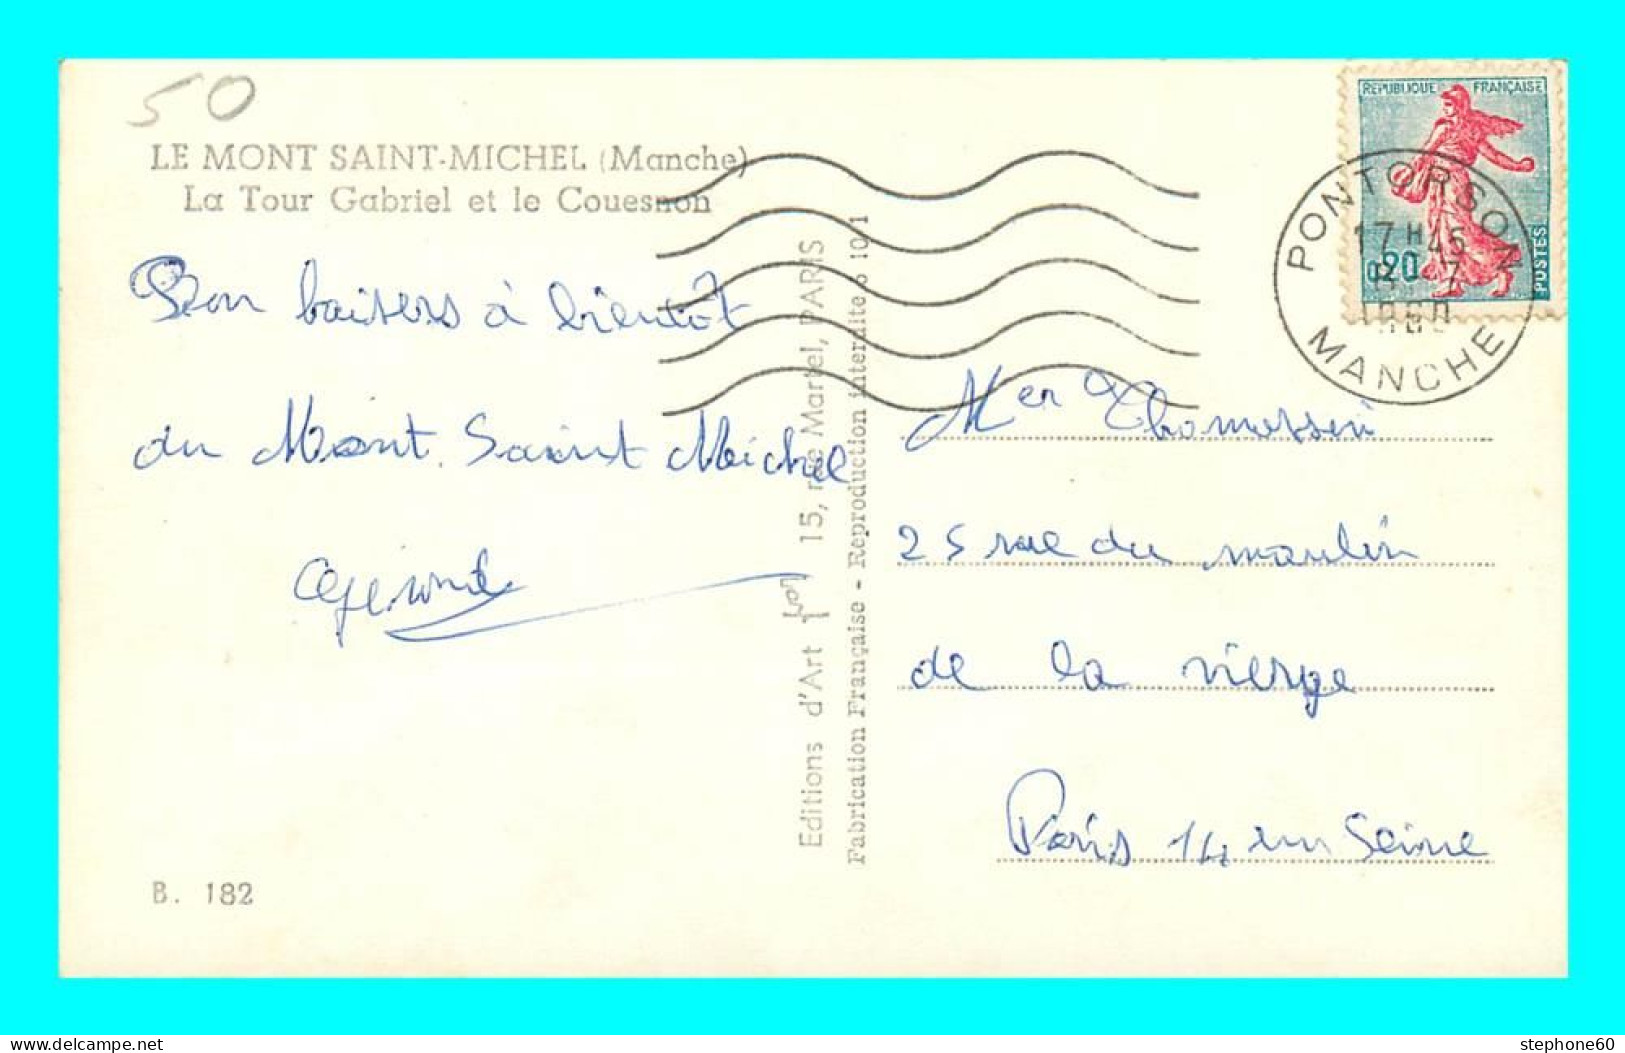 50
LE MONT SAINT-MICHEL (Manche)
La Tour Gabriel et le Couesnon
Bon baisers à bientôt
du Mont Saint Michel
Editions d'Art 15, rue Martel, PARIS
Fabrication Française - Reproduction interdite
RÉPUBLIQUE FRANÇAISE
0,20
POSTES
PONTORSON
17H45
7
1960
MANCHE
25 rue du moulin
de la vierge
Paris 14 em Seine
B. 182
delcampe.net
stephone60